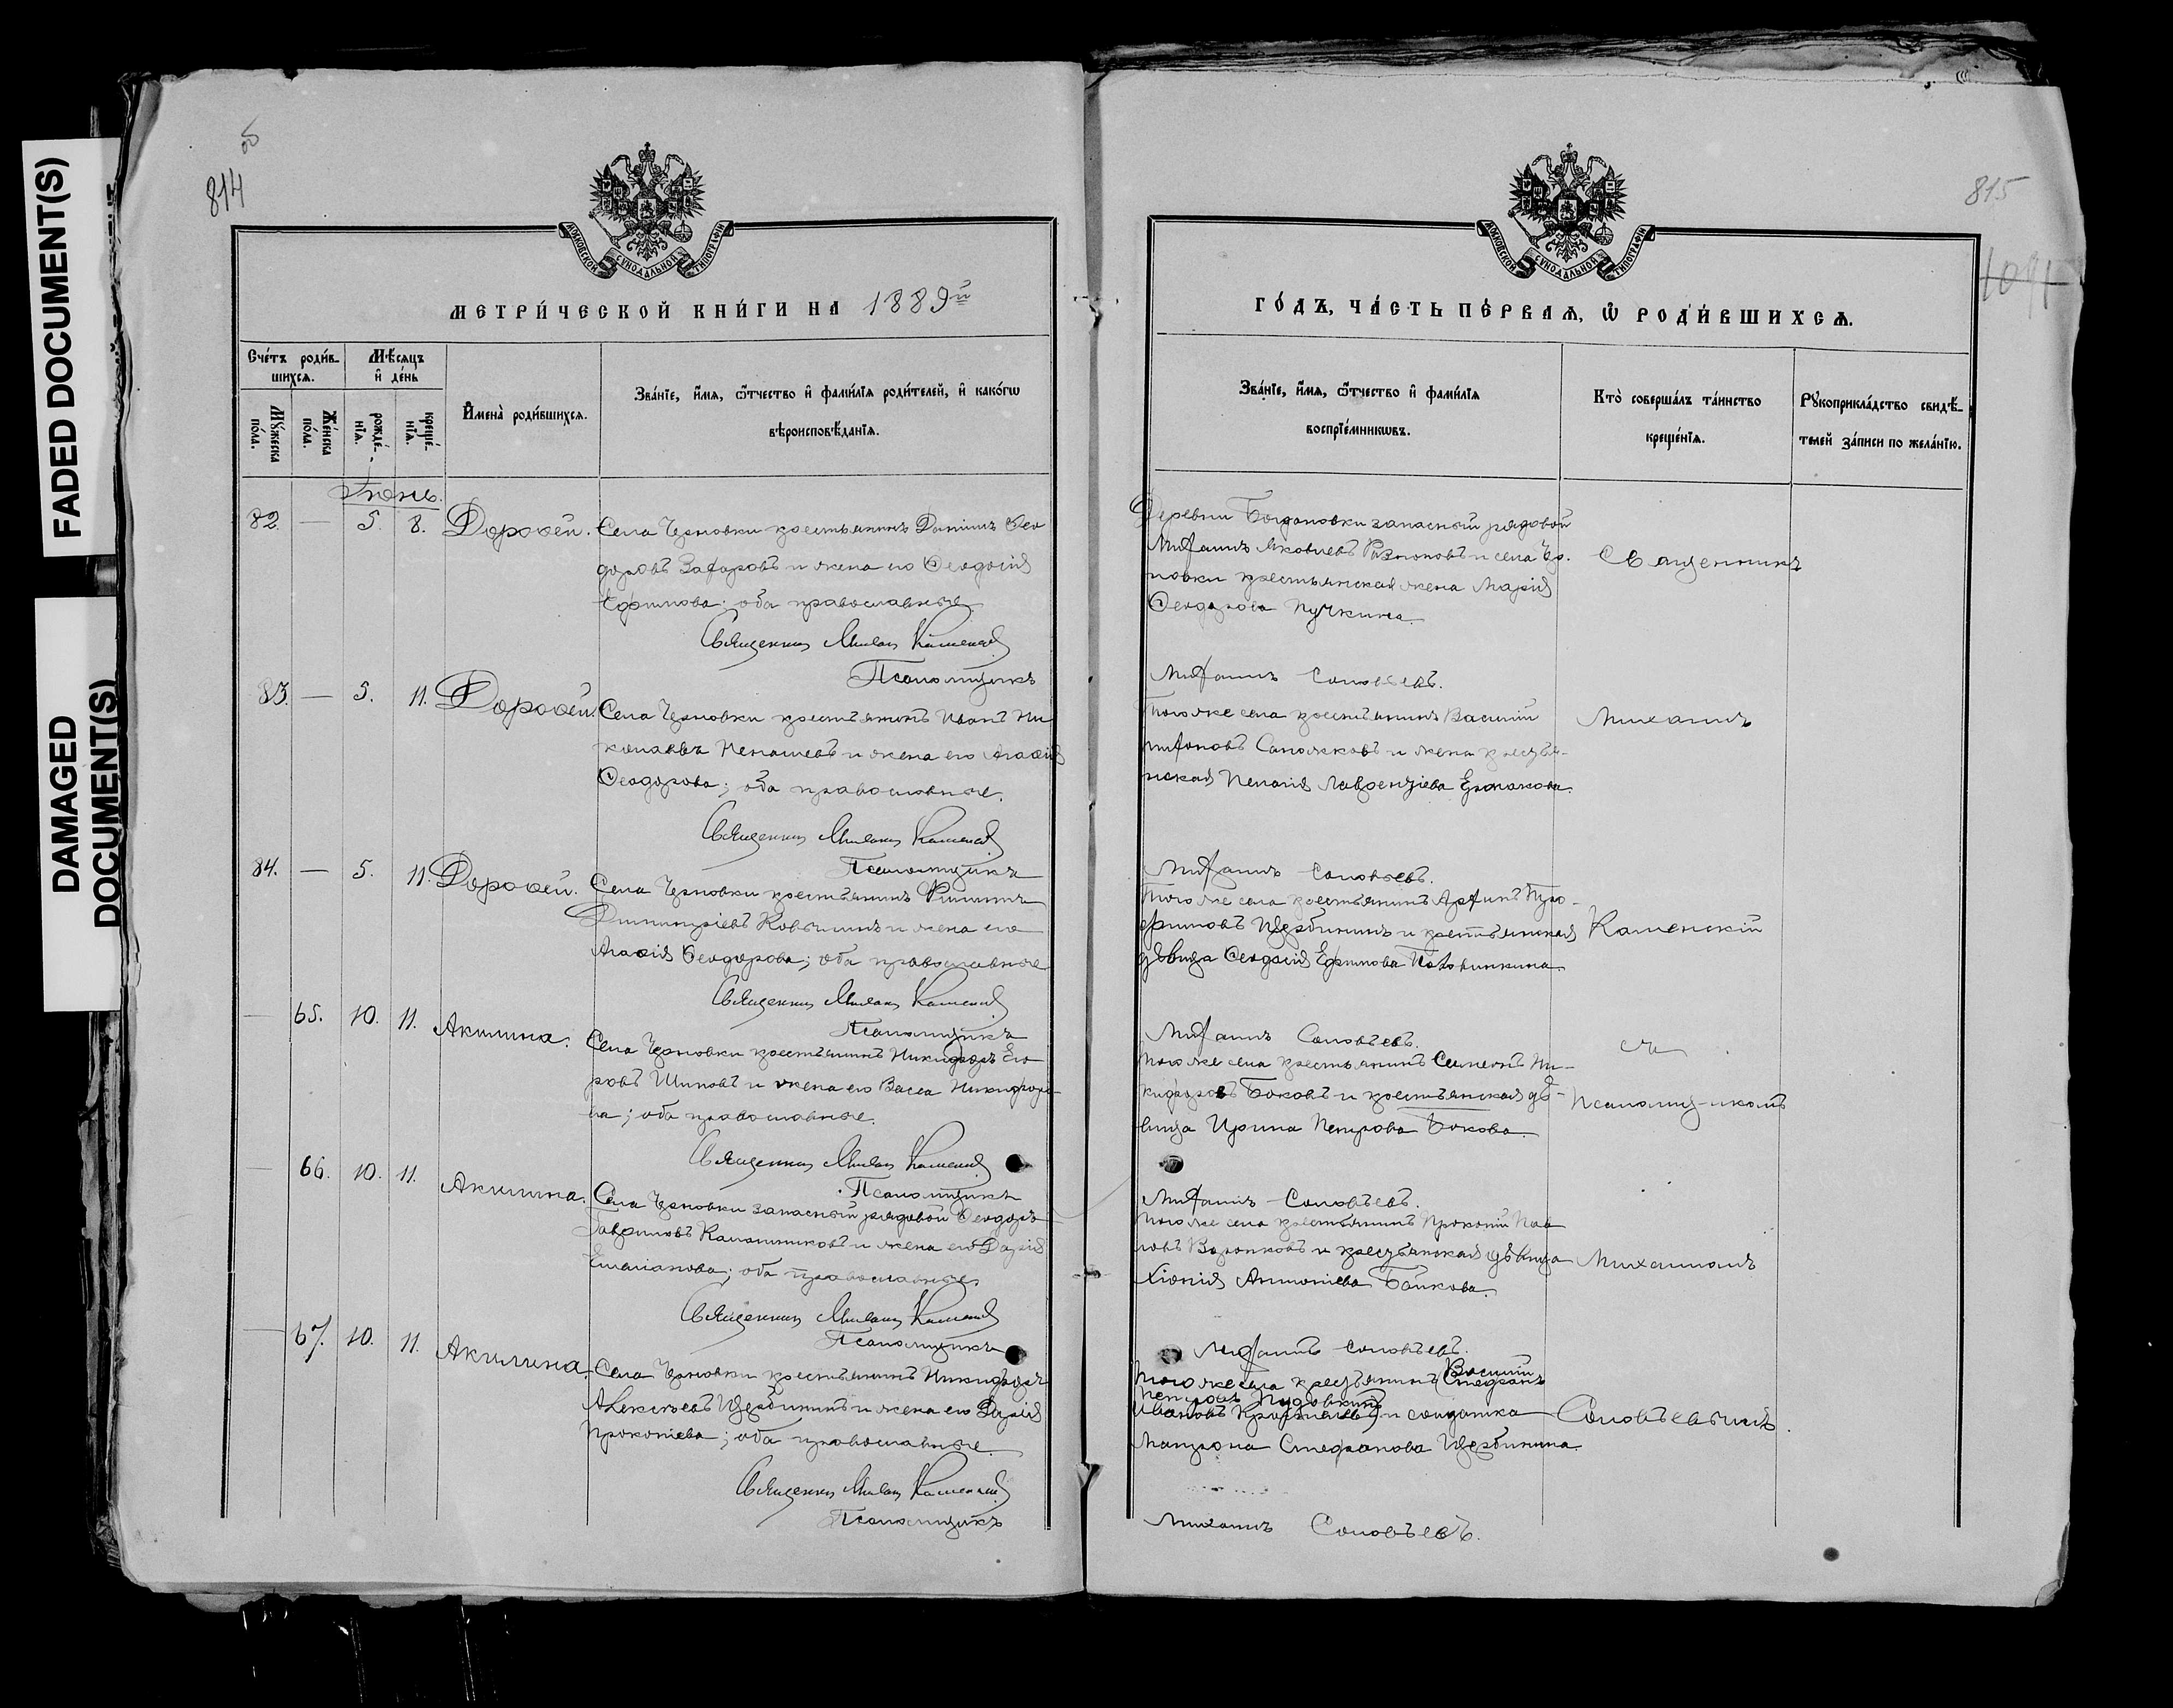 FADED DOCUMENT(S)
DAMAGED
DOCUMENT(S)
814
об
МОСКОВСКОЙ СѴНОДАЛЬНОЙ ТИПОГРАФІИ
МЕТРИ́ЧЕСКОЙ КНИ́ГИ НА 1889й
Сче́тъ роди́в-
шихся.
Мѣ́сяцъ
и҆ де́нь
Мꙋ́жеска
по́ла.
Же́нска
по́ла.
рожде́-
нїѧ.
креще́-
нїѧ.
И҆мена̀ роди́вшихсѧ.
Зва́нїе, и҆́мѧ, ѻ҆́тчество и҆ фами́лїѧ роди́телей, и҆ како́гѡ
вѣроисповѣ́данїѧ.
Іюнь.
82. — 5. 8. Дороѳей. Села Черновки крестьянинъ Даніилъ Ѳео
доровъ Захаровъ и жена его Ѳеодосія
Ефимова; оба православные.
Священникъ Михаилъ Каменскій
Псаломщикъ
83. — 5. 11. Дороѳей. Села Черновки крестьянинъ Иванъ Ни
колаевъ Ненашевъ и жена его Агаѳія
Ѳеодорова; оба православные.
Священникъ Михаилъ Каменскій
Псаломщикъ
84. — 5. 11. Дороѳей. Села Черновки крестьянинъ Филиппъ
Димитріевъ Ковылинъ и жена его
Агаѳія Ѳеодорова; оба православные
Священникъ Михаилъ Каменскій
Псаломщикъ
— 65. 10. 11. Акилина. Села Черновки крестьянинъ Никифоръ Его
ровъ Шиповъ и жена его Васса Никифоро-
ва; оба православные.
Священникъ Михаилъ Каменскій
Псаломщикъ
— 66. 10. 11. Акилина. Села Черновки запасный рядовой Ѳеодоръ
Гавриловъ Калашниковъ и жена его Дарія
Емеліанова; оба православные.
Священникъ Михаилъ Каменскій
Псаломщикъ
— 67. 10. 11. Акилина. Села Черновки крестьянинъ Никифоръ
Алексѣевъ Щербининъ и жена его Дарія
Прокопіева; оба православные.
Священникъ Михаилъ Каменскій
Псаломщикъ
815
1091
МОСКОВСКОЙ СѴНОДАЛЬНОЙ ТИПОГРАФІИ
ГО́ДЪ, ЧА́СТЬ ПЕ́РВАѦ, Ѡ҆ РОДИ́ВШИХСѦ.
Зва́нїе, и҆́мѧ, ѻ҆́тчество и҆ фами́лїѧ
воспрїе́мникѡвъ.
Кто̀ соверша́лъ та́инство
креще́нїѧ.
Рꙋкоприкла́дство свидѣ́-
телей за́писи по жела́нїю.
Деревни Богдановки запасный рядовой
Михаилъ Яковлевъ и села Чер-
новки крестьянская жена Марія
Ѳеодорова Пучкина.
Священникъ
Михаилъ Соловьевъ.
Того же села крестьянинъ Василій
Сапожковъ и жена крестья-
нская Пелагія Лаврентіева Ермакова.
Михаилъ
Михаилъ Соловьевъ.
Того же села крестьянинъ Архипъ Тро-
фимовъ Щербининъ и крестьянская
дѣвица Ѳеодосія Ефимова
Каменскій
Михаилъ Соловьевъ.
Того же села крестьянинъ Симеонъ Ни-
кифоровъ Боковъ и крестьянская дѣ-
вица Ирина Петрова Бокова.
съ
псаломщикомъ
Михаилъ Соловьевъ.
Того же села крестьянинъ Прокопій Пав
ловъ Воронковъ и крестьянская дѣвица
Хіонія Антоніева Байкова.
Михаиломъ
Михаилъ Соловьевъ.
Василій
Того же села крестьянинъ (Стефанъ
Петровъ Пудовкинъ
Ивановъ) и солдатка
Матрона Стефанова Щербинина.
Соловьевымъ.
Михаилъ Соловьевъ.